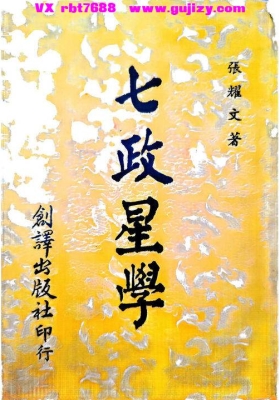 VX rbt7688 www.gujizy.com
張耀文著
七政星學
創譯出版社印行